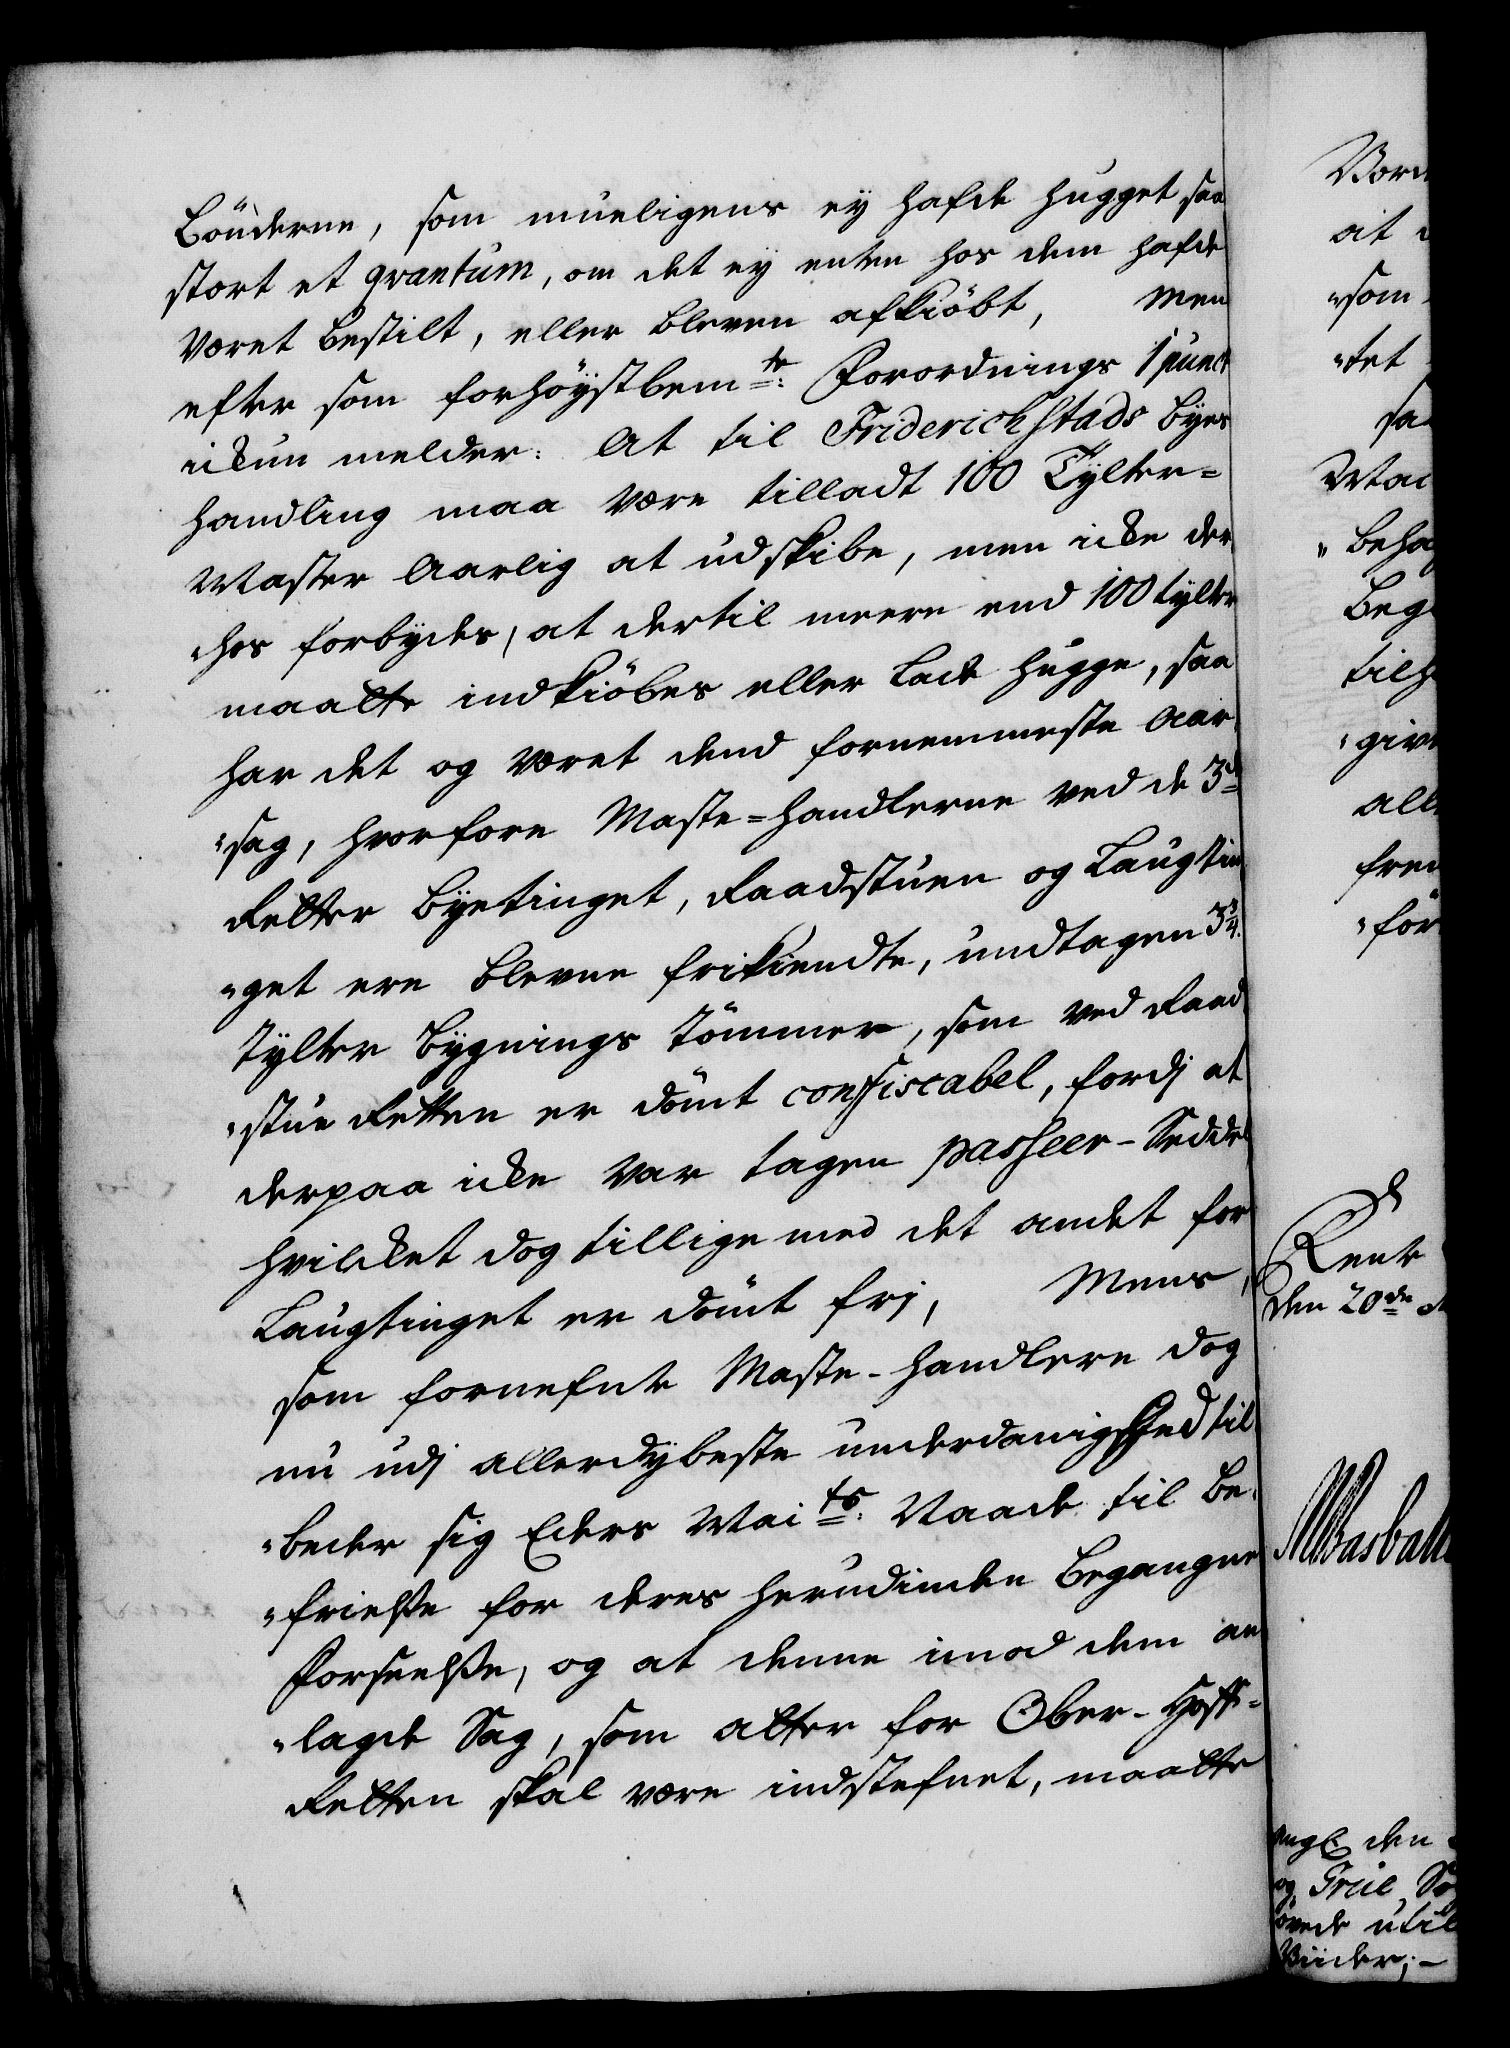 Bönderne, som mueligens ey hafde hugget saa
stort et qvantum, om det ey enten hos dem hafde
været bestilt, eller bleven afkiöbt, Men
efter som forhøystbemte: Forordnings 1 punct
ickun melder: At til Friderichstads Byes
handling maa være tilladt 100 Tylter=
Master Aarlig at udskibe, men icke der
„hos forbydes, at dertil meere end 100 tylter
maatte indkiöbes eller lade hugge, saa
har det og været dend fornemmeste Aar„
„sag, hvorfore Maste=handlerne ved de 3de
Retter Byetinget, Raadstuen og Laugtin„
„get ere blevne frikiendte, undtagen 3¾.
Tylter Bygnings Tömmer, som ved Raad„
„stue Retten er dömt confiscabel, fordj at
derpaa icke var tagen passeer-Seddel
hvilcket dog tillige med det andet for
Laugtinget er dömt frj, Mens,
som fornefnte Maste-handlere dog
nu udj allerdybeste underdanigheed til„
„beder sig Eders Maits: Naade til be„
„frielsse for deres herudinden begangne
Forseelsse, og at denne imod dem an„
„lagde Sag, som atter for Ober-Hoff=
Retten skal være indstefnet, maatte
Vor
at
„som
„tet
„beha
Beg
tilh
„giv
all
frem
„för
Rente
den 20de
den
og True
Viider;-